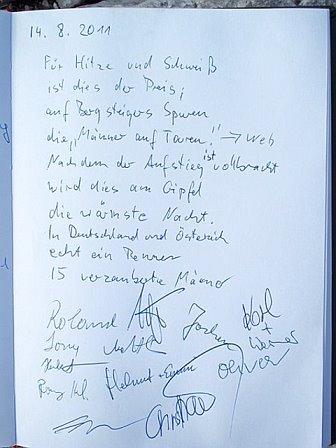 14. 8. 2011
Für Hitze und Schweiß
ist dies der Preis;
auf Bergsteigers Spuren
die „Männer auf Touren." → Web
Nachdem der Aufstieg ist vollbracht
wird dies am Gipfel
die wärmste Nacht.
In Deutschland und Österreich
echt ein Renner
15 verzauberte Männer
Roland Jochen Karl
+ Werner
Helmut Oliver
Christian